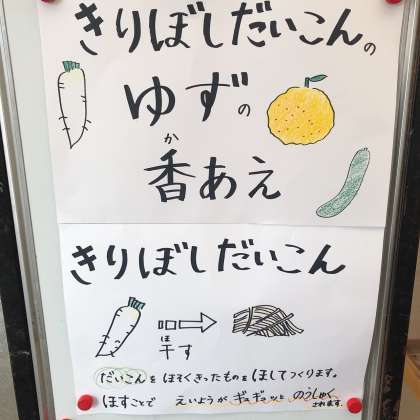 きりぼしだいこんの
ゆずの
か
香あえ
きりぼしだいこん
ほ
干す
だいこんをほそくきったものをほしてつくります。
ほすことで えいようがギュギュッとのうしゅく
されます。